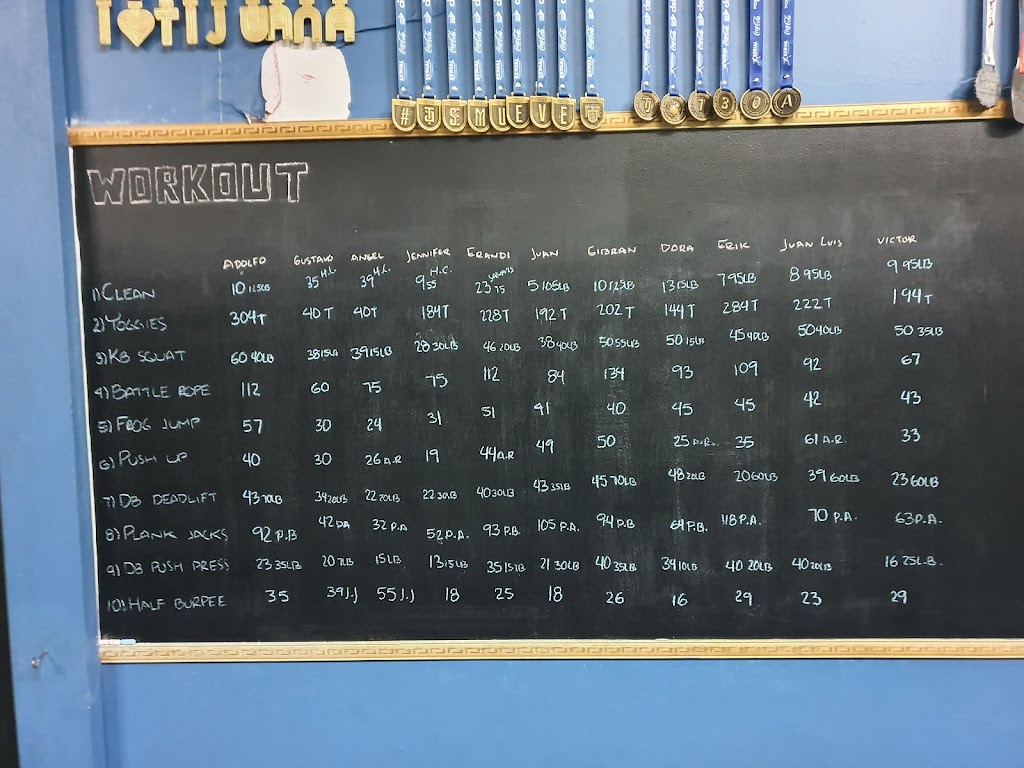 TIJUANA
Coca-Cola Coca-Cola Coca-Cola Coca-Cola
#DSMUEVE
WORKOUT
ADOLFO GUSTAVO ANGEL JENNIFER ERANDI JUAN GIBRAN DORA ERIK JUAN LUIS VICTOR
1) CLEAN 10 115LB 35 39 9 55 23 75 5 105LB 10 125LB 13 15LB 7 95LB 8 95LB 9 95LB
2) TOGGIES 304T 40T 40T 184T 228T 192T 202T 144T 284T 222T 194T
3) KB SQUAT 60 40LB 38 15LB 39 15LB 28 30LB 46 20LB 38 40LB 50 55LB 50 15LB 45 40LB 50 40LB 50 35LB
4) BATTLE ROPE 112 60 75 75 112 84 134 93 109 92 67
5) FROG JUMP 57 30 24 31 51 41 40 45 45 42 43
6) PUSH UP 40 30 26 A.R 19 44 A.R 49 50 25 A.R. 35 61 A.R. 33
7) DB DEADLIFT 43 70LB 34 20LB 22 20LB 22 30LB 40 30LB 43 35LB 45 70LB 48 20LB 20 60LB 39 60LB 23 60LB
8) PLANK JACKS 92 P.B 42 PA 32 P.A 52 P.A. 93 P.B. 105 P.A. 94 P.B 64 P.B. 118 P.A. 70 P.A. 63 P.A.
9) DB PUSH PRESS 23 35LB 20 7LB 15LB 13 15LB 35 15LB 21 30LB 40 35LB 34 10LB 40 20LB 40 20LB 16 25L.B.
10) HALF BURPEE 35 39 J.J 55 J.J 18 25 18 26 16 29 23 29